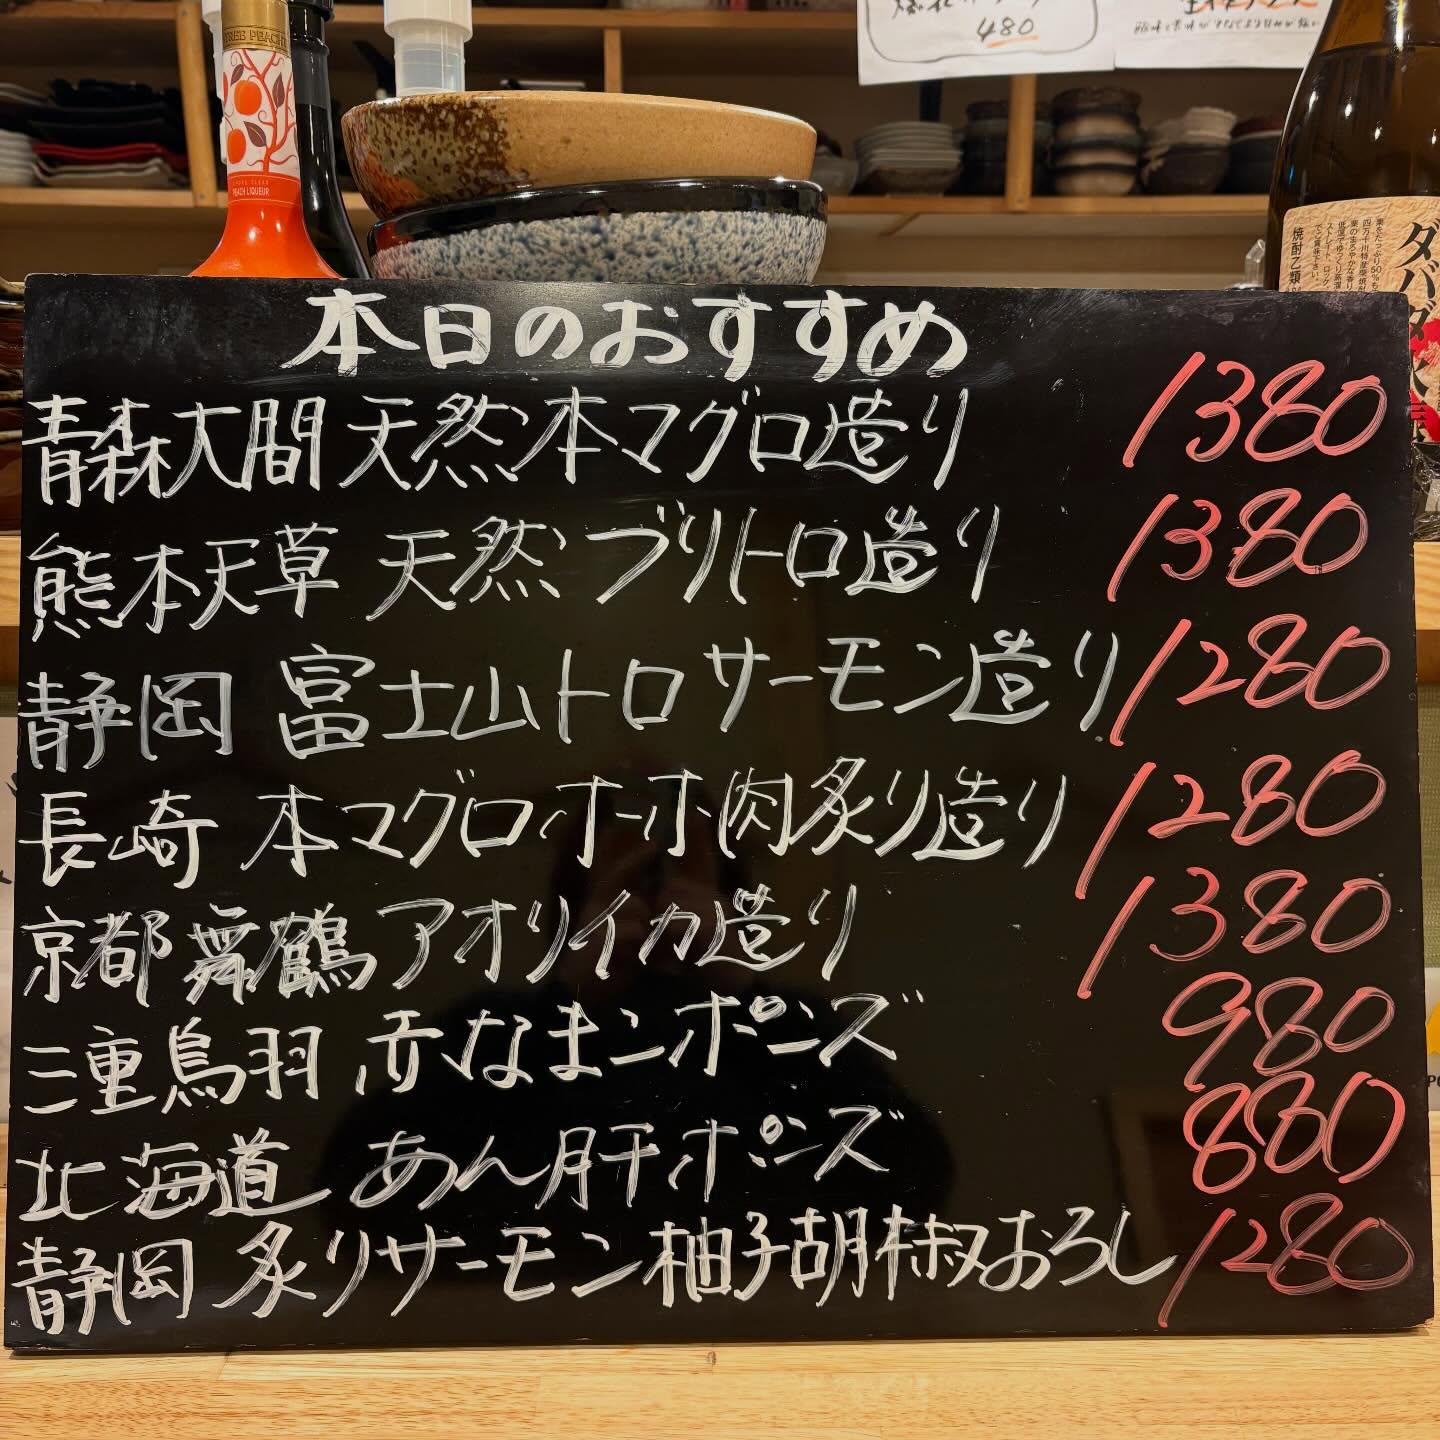 480
TREE PEACH
PEACH LIQUEUR
ダバダ火
焼酎乙類
本日のおすすめ
青森大間 天然本マグロ造り 1380
熊本天草 天然ブリトロ造り 1380
静岡 富士山トロサーモン造り 1280
長崎 本マグロホホ肉炙り造り 1280
京都舞鶴アオリイカ造り 1380
三重鳥羽 赤なまこポン酢ズ 980
北海道 あん肝ポンズ 880
静岡 炙りサーモン柚子胡椒おろし 1280